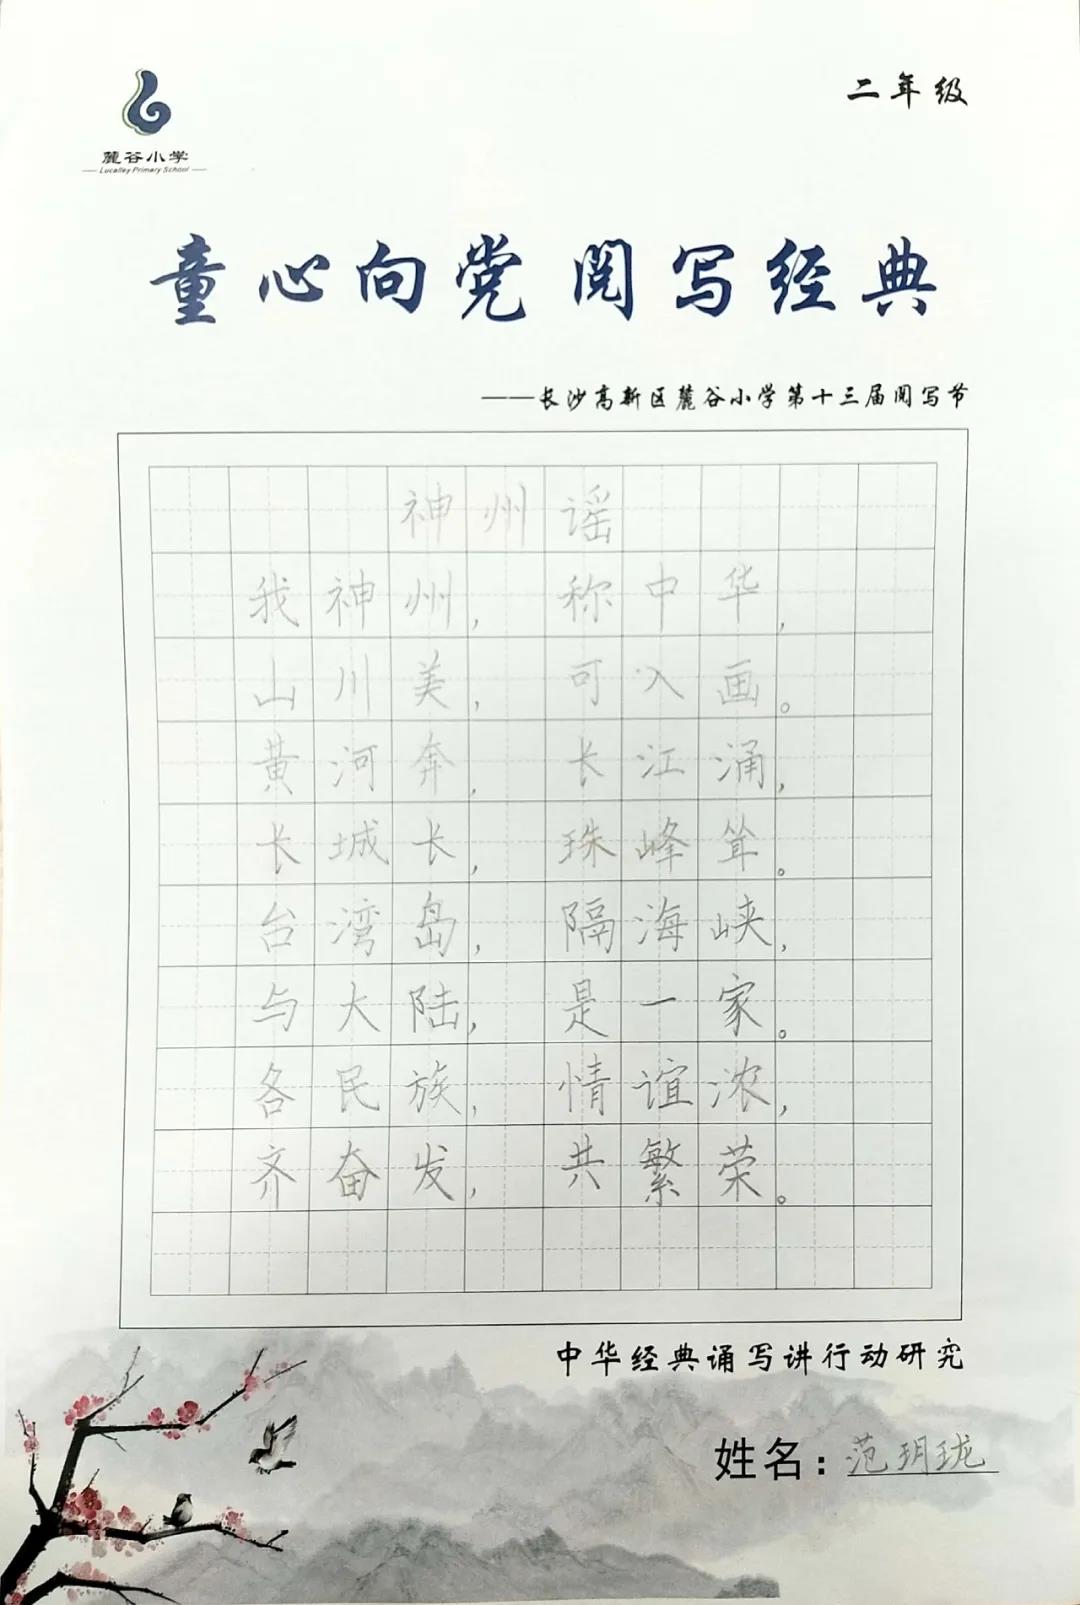 二年级
麓谷小学
Lucalley Primary School
童心向党 阅写经典
——长沙高新区麓谷小学第十三届阅写节
神州谣
我神州，称中华，
山川美，可入画。
黄河奔，长江涌，
长城长，珠峰耸。
台湾岛，隔海峡，
与大陆，是一家。
各民族，情谊浓，
齐奋发，共繁荣。
中华经典诵写讲行动研究
姓名：范玥珑